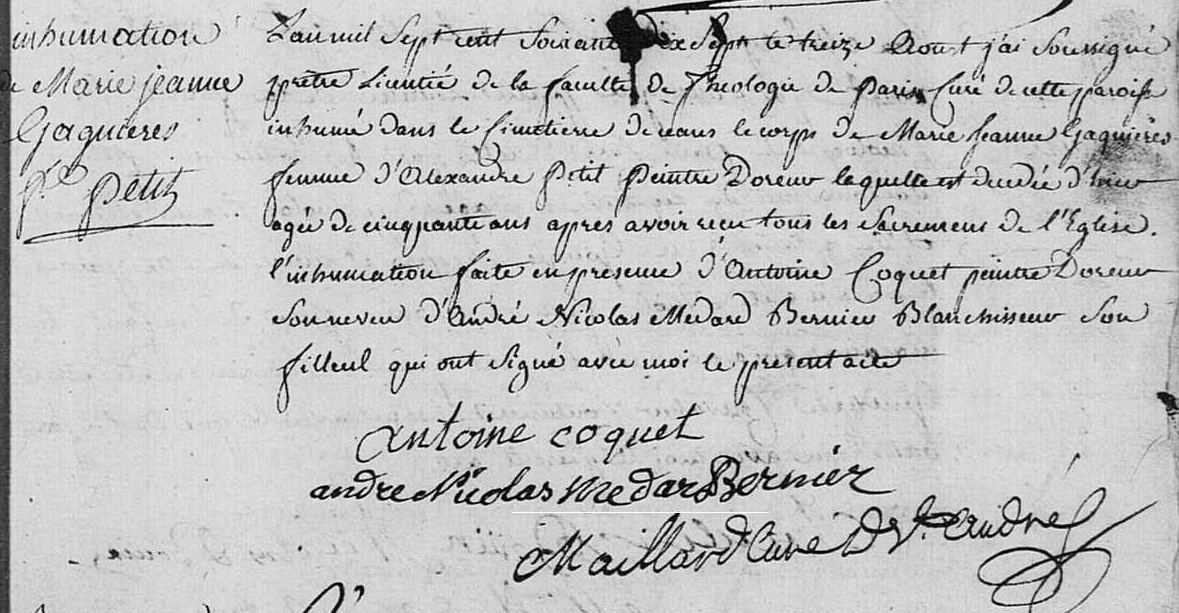 inhumation
de Marie jeanne
Gagnieres
fe. Petit
L'an mil Sept cent Soixante dix Sept le treize Aoust j'ai Soussigné
prêtre Licentié de la faculté de Theologie de Paris Curé de cette paroisse
inhumé dans le Cimetierre de ceans le corps de Marie Jeanne Gagnières
femme d'Alexandre Petit Peintre Doreur laquelle est decedée d'hier
agée de cinquante ans apres avoir reçu tous les Sacremens de l'Eglise.
l'inhumation faite en presence d'Antoine Coquet peintre Doreur
son neveu d'André Nicolas Medard Bernier Blanchisseur Son
filleul qui ont Signé avec moi le present acte
antoine coquet
andre Nicolas medar Bernier
Maillard Curé De St. André